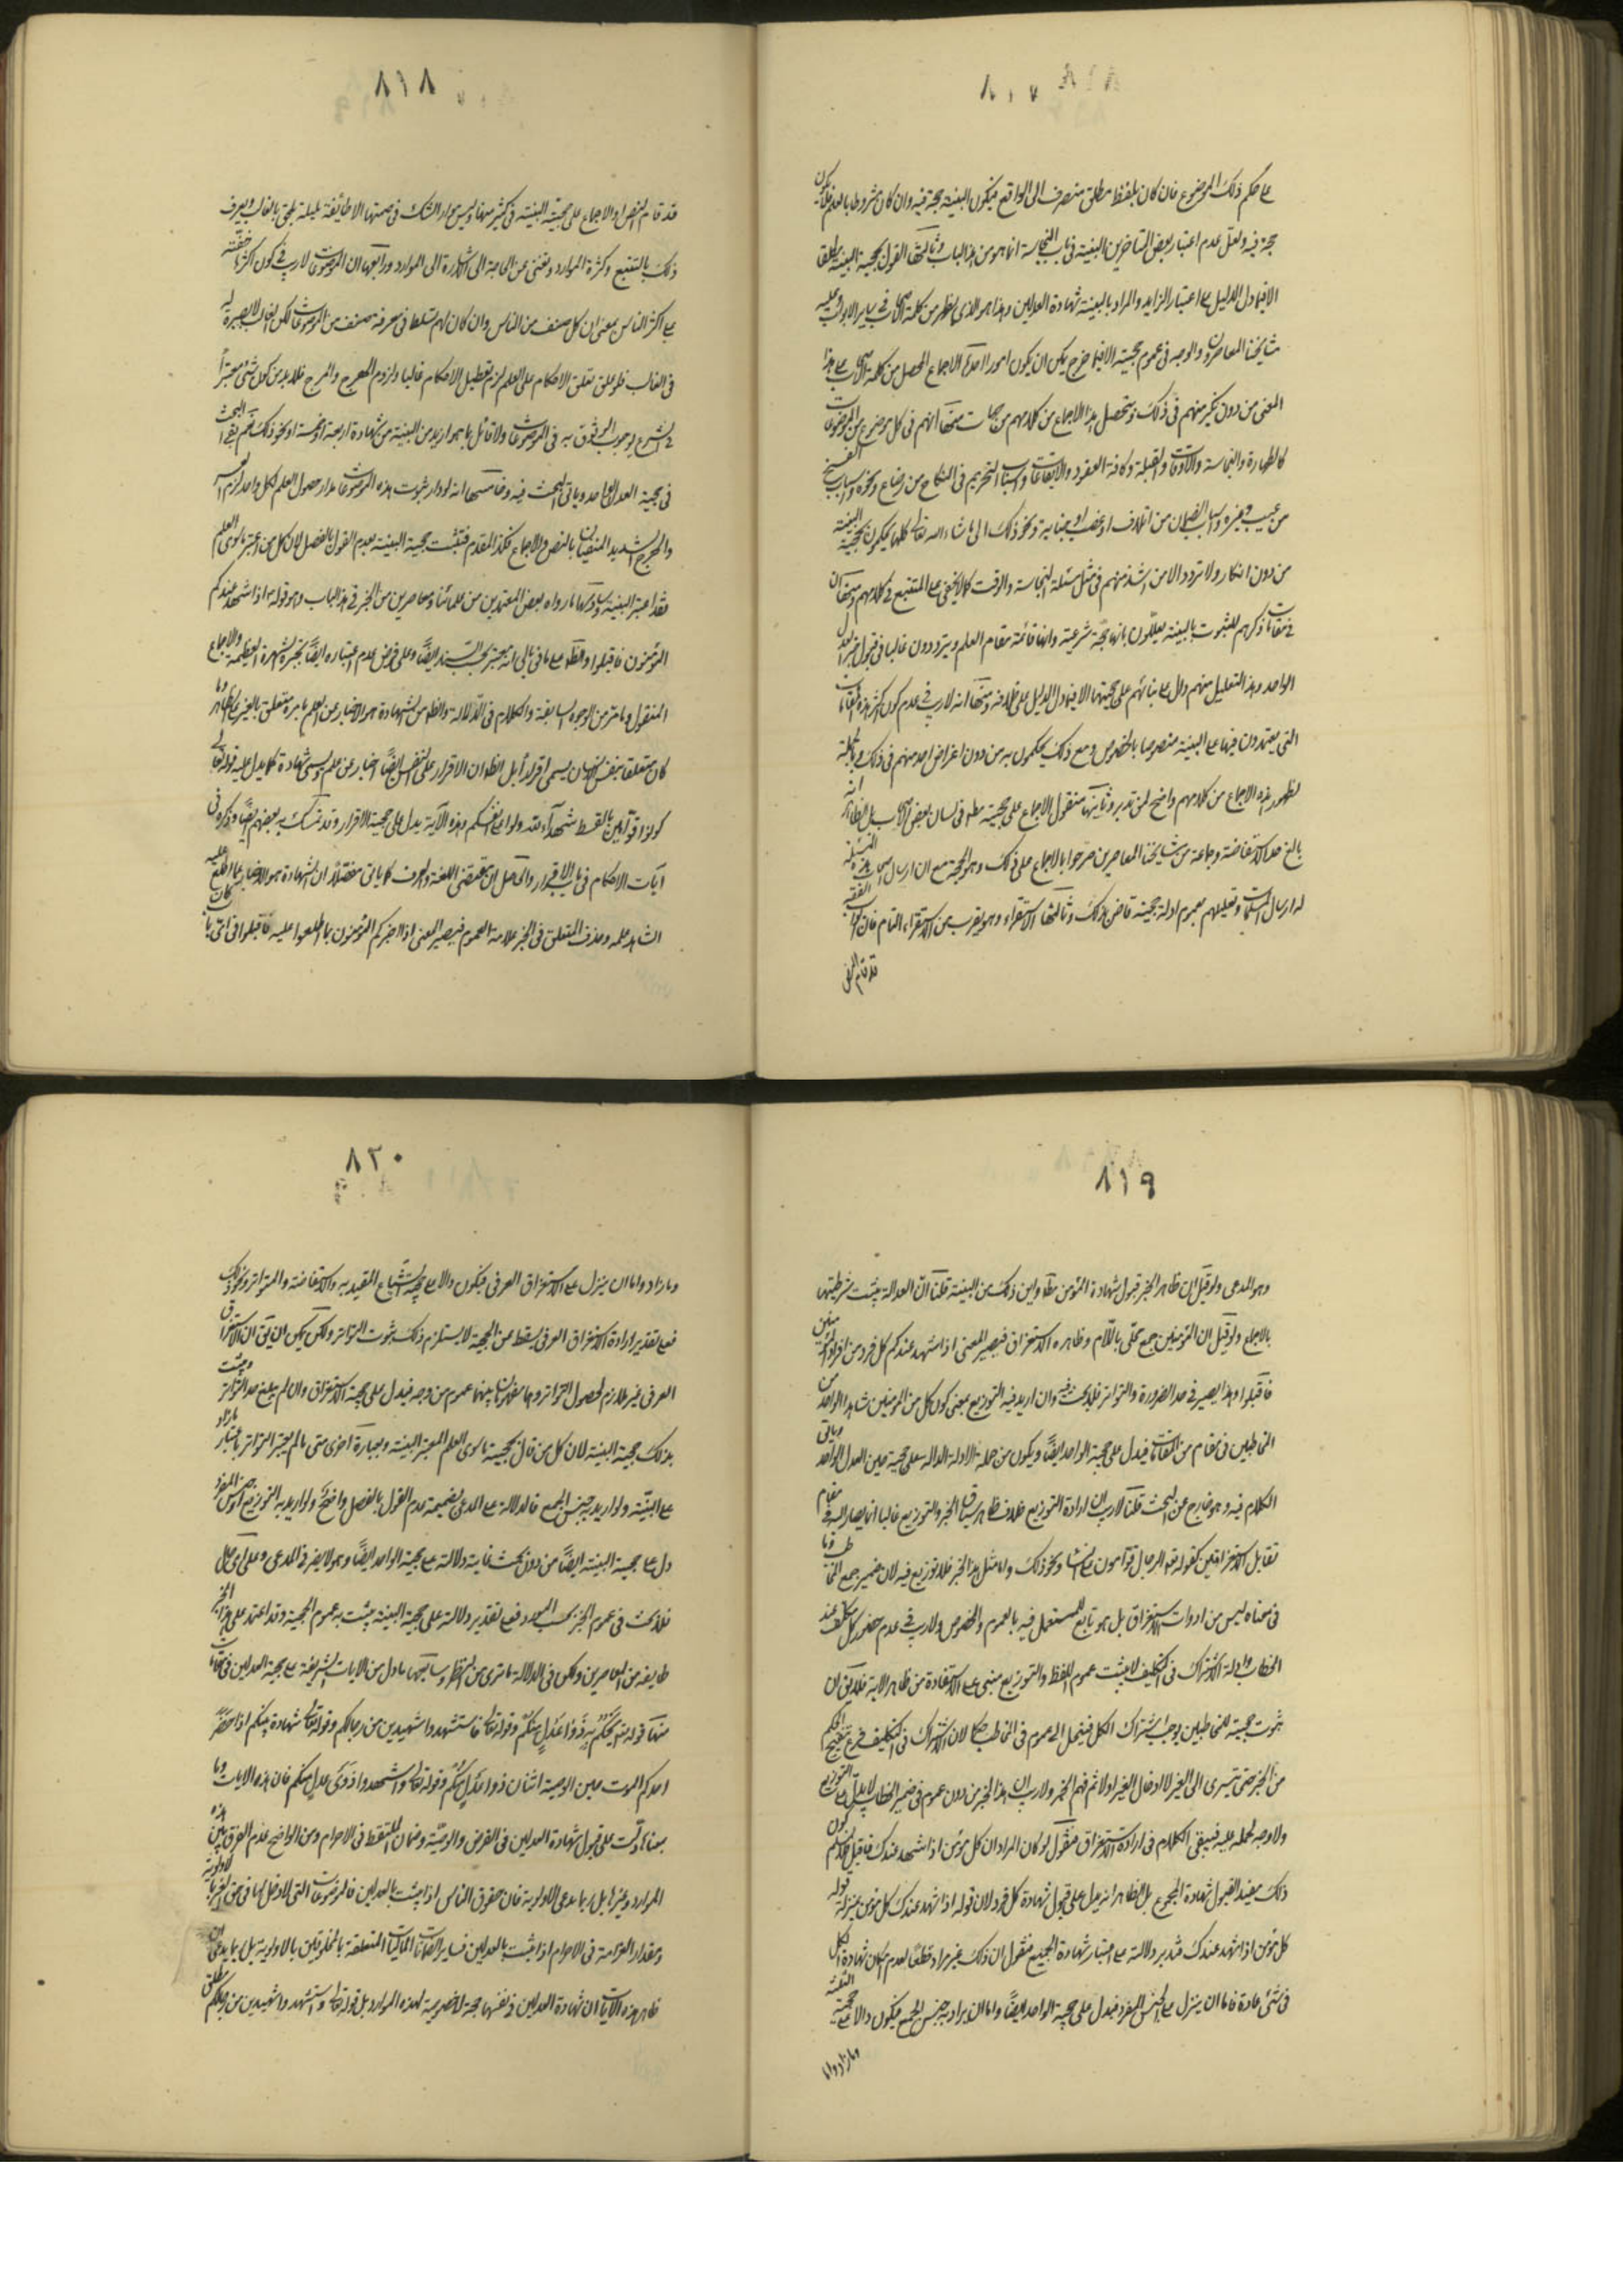 ٨١٧
على حكم ذلك الموضوع فان كان بلفظ مطلق منصرف الى الواقع فيكون البينة حجة فيه وان كان مشروطا بالعلم فلا يكون
حجة فيه ولعل عدم اعتبار بعض المتاخرين البينة في باب النجاسة انما هو من هذا الباب وثالثها القول بحجية البينة مطلقا
الا فيما دل الدليل على اعتبار الزايد والمراد بالبينة شهادة العدلين وهذا هو الذي يظهر من كلمة الاصحاب في ساير الابواب وعليه
مشايخنا المعاصرون والوجه في عموم حجيته الا فيما خرج يمكن ان يكون امورا احدها الاجماع المحصل من كلمة الاصحاب على هذا
المعنى من دون نكير منهم في ذلك ويتحصل هذا الاجماع من كلامهم من جهات منها انهم في كل موضوع من الموضوعات
كالطهارة والنجاسة والاوقات والقبلة وكافة العقود والايقاعات واسباب التحريم في النكاح من رضاع ونحوه واسباب الفسخ
من عيب وغيره واسباب الضمان من اتلاف او غصب او جناية ونحو ذلك الى ما شاء الله تعالى كلها يحكمون بحجية البينة
من دون انكار ولا تردد الا من شذ منهم في مثل مسئلة النجاسة والوقت كما لا يخفى على المتتبع في كلامهم ومنها ان
في مقامات ذكرهم للثبوت بالبينة يعللون بانها حجة شرعية وانها قائمة مقام العلم ويترددون غالبا في قبول خبر العدل
الواحد وهذا التعليل منهم دال على بنائهم على حجيتها الا فيما دل الدليل على خلافه ومنها انه لا ريب في عدم كون اكثر هذه المقامات
التي يعتمدون فيها على البينة منصوصا بالخصوص ومع ذلك يحكمون به من دون اعتراض احد منهم في ذلك وبالجملة
لظهور هذا الاجماع من كلامهم واضح لمن تدبر وثانيها منقول الاجماع على حجيته مط في لسان بعض الاصحاب بل الظاهر انه
بالغ حد الاستفاضة وجماعة من مشايخنا المعاصرين صرحوا بالاجماع على ذلك وهو الحجة مع ان ارسال الاصحاب هذه المسئلة
له ارسال المسلمات وتعليلهم بعموم ادلة حجيته قاض بذلك وثالثها الاستقراء وهو يقرب من الاستقراء التام فان ابواب الفقه
قد قام النص
٨١٨
قد قام النص او الاجماع على حجية البينة في كثير منها وليس موارد الشك في حجيتها الا طائفة قليلة يلحق بالغالب ويعرف
ذلك بالتتبع وكثرة الموارد ويغني عن الحاجة الى الاشارة الى الموارد ورابعها ان الموضوعات لا ريب في كون اكثرها خفية
على اكثر الناس بمعنى ان كل صنف من الناس وان كان لهم تسلط في معرفة صنف من الموضوعات لكن الغالب لا بصيرة له
في الغالب فلو علق تعلق الاحكام على العلم لزم تعطيل الاحكام غالبا ولزوم الهرج والمرج فلا بد من كون شئ معتبرا
في الشرع يوجب الوثوق به في الموضوعات ولا قائل بما هو ازيد من البينة من شهادة اربعة او خمسة او نحو ذلك نعم يبقى البحث
في حجية العدل الواحد وياتي البحث فيه وخامسها انه لو دار ثبوت هذه الموضوعات مدار حصول العلم لكل واحد لزم العسر
والحرج الشديد المنفيان بالنص والاجماع كذا المقدم فتثبت حجية البينة بعدم القول بالفصل لان كل من اعتبر ما سوى العلم
فقد اعتبر البينة وسادسها ما رواه بعض المعتمدين من علمائنا ومعاصرين من الخبر في هذا الباب وهو قوله اذا شهد عندكم
المؤمنون فاقبلوا والظاهر على ما في بالي انه معتبر بحسب السند ايضا وعلى فرض عدم اعتباره ايضا يجبره الشهرة العظيمة والاجماع
المنقول وما مر من الوجوه السابقة والكلام في الدلالة والظاهر من الشهادة هو الاخبار عن العلم بامر متعلق بالغير ظاهرا وما
كان متعلقا بنفس الانسان يسمى اقرارا بل الظاهر ان الاقرار على النفس ايضا اخبار عن علم ويسمى شهادة كما يدل عليه قوله تعالى
كونوا قوامين بالقسط شهداء لله ولو على انفسكم وهذه الآية يدل على حجية الاقرار وقد تمسك به بعضهم ايضا وذكره في
آيات الاحكام في باب الاقرار والحاصل ان مقتضى اللغة والعرف كما ياتي مفصلا ان الشهادة هو الاخبار بما اطلع عليه
الشاهد علمه وحذف المتعلق في الخبر علامة العموم فيصير المعنى اذا اخبركم المؤمنون بما اطلعوا عليه فاقبلوا في اي باب كان
٨١٩
وهو المدعى ولو قيل ان ظاهر الخبر قبول شهادة المؤمن مط واين ذلك من البينة قلنا ان العدالة يثبت شرطيتها
بالاجماع ولو قيل ان المؤمنين جمع محلى باللام وظاهره الاستغراق فيصير المعنى اذا شهد عندكم كل فرد من افراد المؤمنين
فاقبلوا وهذا يصير في حد الضرورة والتواتر فلا بحث فيه وان اريد فيه التوزيع بمعنى كون كل من المؤمنين شاهدا لواحد من
المخاطبين في مقام من المقامات فيدل على حجية الواحد ايضا ويكون من جملة الادلة الدالة على حجية خبر العدل الواحد وياتي
الكلام فيه وهو خارج عن البحث قلنا لا ريب ان ارادة التوزيع خلاف ظاهر سياق الخبر والتوزيع غالبا انما يصار اليه في مقام
تقابل الاستغراقين كقوله تعالى الرجال قوامون على النساء ونحو ذلك واما مثل هذا الخبر فلا توزيع فيه لان ضمير جمع المخاطب وما
في معناه ليس من ادوات الاستغراق بل هو تابع للمستعمل فيه بالعموم والخصوص ولا ريب في عدم حضور كل مكلف عند
الخطاب وادلة الاشتراك في التكليف لا يثبت عموم اللفظ والتوزيع مبني على الاستفادة من ظاهر الآية فلا يق ان
ثبوت حجيته للمخاطبين يوجب اشتراك الكل فينحل الى عموم في المخاطب حكما لان الاشتراك في التكليف فرع تنقيح الحكم
من الخبر حتى يسرى الى الغير لا ادخال الغير اولا ثم فهم الخبر ولا ريب ان هذا الخبر من دون عموم في ضمير الخطاب لا يدل على التوزيع
ولا وجه لحمله عليه فيبقى الكلام في ارادة الاستغراق فنقول لو كان المراد ان كل مؤمن اذا شهد عندك فاقبل فلا نسلم كون
ذلك مفيدا لقبول شهادة المجموع بل الظاهر انه يدل على قبول شهادة كل فرد لان قوله اذا شهد عندك كل مؤمن بمنزلة قوله
كل مؤمن اذا شهد عندك فتدبر دلالته على اعتبار شهادة الجميع فنقول ان ذلك غير مراد قطعا لعدم امكان شهادة الكل
في شئ عادة فاما ان ينزل على الجنس المفرد فيدل على حجية الواحد ايضا واما ان يراد به جنس الجمع فيكون دالا على حجية الثلثة
وما زاد واما
٨٢٠
وما زاد واما ان ينزل على الاستغراق العرفي فيكون دالا على حجية الشياع المفيد به والاستفاضة والمتواتر ونحو ذلك
فعلى تقدير ارادة الاستغراق العرفي يسقط عن الحجية لا يستلزم ذلك ثبوت التواتر ولكن يمكن ان يق ان الاستغراق
العرفي غير ملازم لحصول التواتر وهما مفهومان بينهما عموم من وجه فيدل على حجية الاستغراق وان لم يبلغ حد التواتر ويثبت
بذلك حجية البينة لان كل من قال بحجية ما سوى العلم المعتبر البينة وبعبارة اخرى متى ما لم يعتبر التواتر باعتبار ما زاد
على البينة ولو اريد به جنس الجمع فالدلالة على المدعى بضميمة عدم القول بالفصل واضح ولو اريد به التوزيع او جنس المفرد
دل على حجية البينة ايضا من دون بحث غايته دلالته على حجية الواحد ايضا وهو لا يضر في المدعى وعلى اي حال
فلا بحث في عموم الخبر بحسب المورد فعلى تقدير دلالته على حجية البينة يثبت به عموم الحجية وقد اعتمد على هذا الخبر
طايفة من المعاصرين ولكن في الدلالة ما ترى من النظر وسابعها ما دل من الآيات الشريفة على حجية العدلين في مقامات
منها قوله تعالى يحكم به ذوا عدل منكم وقوله تعالى فاستشهدوا شهيدين من رجالكم وقوله تعالى شهادة بينكم اذا حضر
احدكم الموت حين الوصية اثنان ذوا عدل منكم وقوله تعالى واشهدوا ذوي عدل منكم فان هذه الآيات وما
بمعناها دلت على قبول شهادة العدلين في القرض والوصية وضمان الملتقط في الاحرام ومن الواضح عدم الفرق بين هذه
الموارد وغيرها بل ربما يدعى الاولوية فان حقوق الناس اذا يثبت بالعدلين فالموضوعات التي لا دخل لها في حق الغير بالاولوية
ومقدار الغرامة في الاحرام اذا يثبت بالعدلين فساير الضمانات الماليات المتعلقة بالمخلوقين بالاولوية بل ربما يدعى ان
ظاهر هذه الآيات ان شهادة العدلين في نفسها حجة لا خصوصية لهذه الموارد بل قوله تعالى واستشهدوا شهيدين من رجالكم مطلق